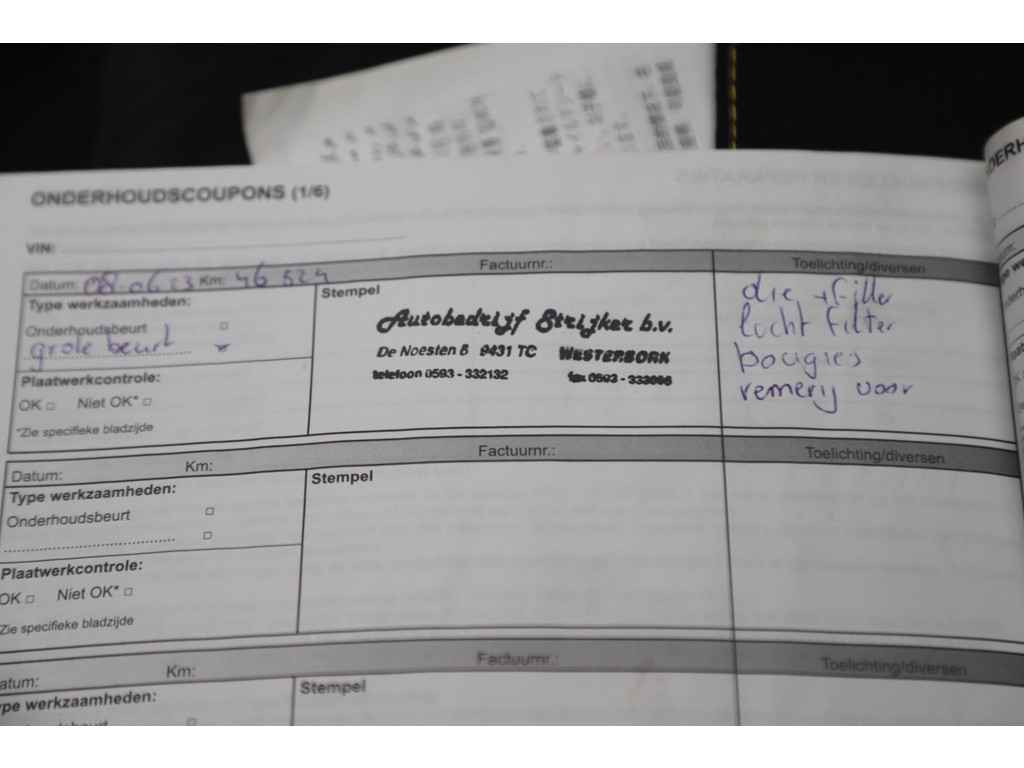 ONDERHOUDSCOUPONS (1/6)
VIN:
Datum: 08-06-23 Km: 46 524 Factuurnr.: Toelichting/diversen
Type werkzaamheden:
Onderhoudsbeurt □
grote beurt
Plaatwerkcontrole:
OK □ Niet OK* □
*Zie specifieke bladzijde
Stempel
Autobedrijf Strijker b.v.
De Noesten 6 9431 TC WESTERBORK
telefoon 0593 - 332132 fax 0593 -
olie, + filter
lucht filter
bougies
remmerij voor
Datum: Km: Factuurnr.: Toelichting/diversen
Type werkzaamheden:
Onderhoudsbeurt □
........................................ □
Plaatwerkcontrole:
OK □ Niet OK* □
Zie specifieke bladzijde
Stempel
atum: Km: Factuurnr.: Toelichting/diversen
ype werkzaamheden:
Stempel